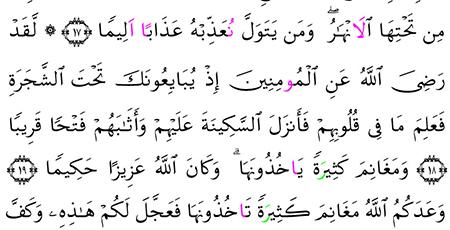 مِن تَحْتِهَا اَ۬لَانْهَٰرُۖ وَمَن يَتَوَلَّ نُعَذِّبْهُ عَذَابًا اَلِيمًا ﴿١٧﴾ ۞ لَّقَدْ
رَضِيَ اَ۬للَّهُ عَنِ اِ۬لْمُومِنِينَ إِذْ يُبَايِعُونَكَ تَحْتَ اَ۬لشَّجَرَةِ
فَعَلِمَ مَا فِي قُلُوبِهِمْ فَأَنزَلَ اَ۬لسَّكِينَةَ عَلَيْهِمْ وَأَثَٰبَهُمْ فَتْحًا قَرِيبًا
﴿١٨﴾ وَمَغَانِمَ كَثِيرَةً يَاخُذُونَهَاۗ وَكَانَ اَ۬للَّهُ عَزِيزًا حَكِيمًا ﴿١٩﴾
وَعَدَكُمُ اُ۬للَّهُ مَغَانِمَ كَثِيرَةً تَاخُذُونَهَا فَعَجَّلَ لَكُمْ هَٰذِهِۦ وَكَفَّ